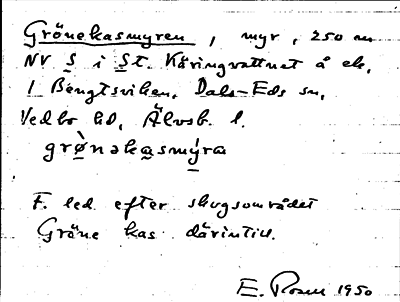 Grönekasmyren, myr, 250 m
NV S i St. Käringvattnet å ek.
1 Bengtsviken, Dals-Eds sn,
Vedbo hd, Älvsb. l.
grö̀nəkasmýra
F. led efter skogsområdet
Gröne kas därintill.
E. Rosell 1950